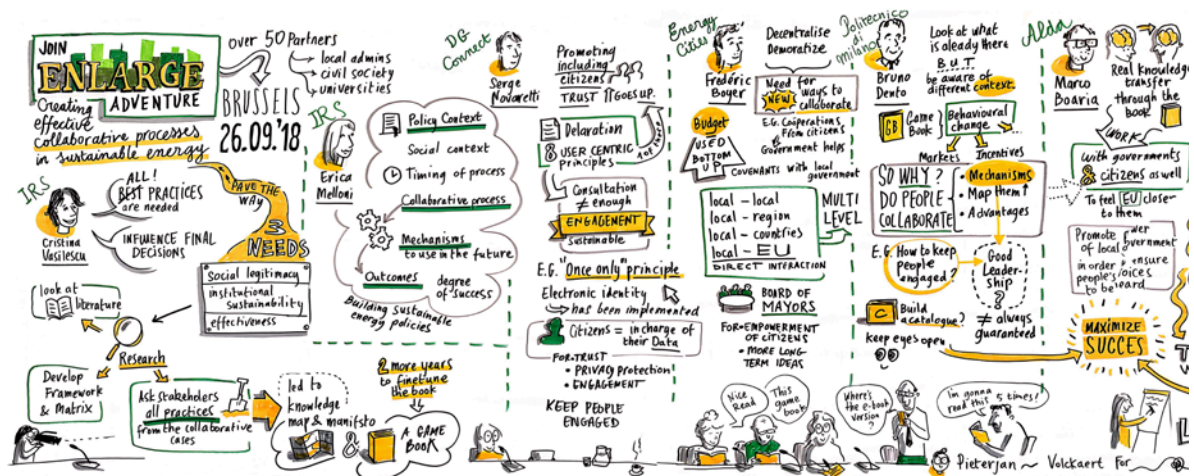 JOIN
ENLARGE
ADVENTURE
Creating
effective
collaborative processes
in sustainable energy
over 50 Partners
local admins
civil society
universities
BRUSSELS
26.09.'18
IRS
Cristina
Vasilescu
ALL!
BEST PRACTICES
are needed
INFLUENCE FINAL
DECISIONS
PAVE THE
WAY
3
NEEDS
Social legitimacy
institutional
sustainability
effectiveness
look at
literature
Research
Develop
Framework
& Matrix
Ask stakeholders
all practices
from the collaborative
cases
led to
knowledge
map & manifsto
&
2 more years
to finetune
the book
A GAME
BOOK
IRS
Erica
Melloni
Policy Context
Social context
Timing of process
Collaborative process
Mechanisms
to use in the future
Outcomes
degree
of success
Building sustainable
energy policies
DG
Connect
Serge
Novaretti
Promoting
including
citizens
TRUST GOES UP.
Delaration
8 USER CENTRIC
principles
Consultation
≠
enough
ENGAGEMENT
Sustainable
E.G. "Once only" principle
Electronic identity
has been implemented
Citizens = in charge of
their Data
FOR TRUST
• PRIVACY Protection
• ENGAGEMENT
KEEP PEOPLE
ENGAGED
Energy
Cities
Frédéric
Boyer
Decentralise
Demoratize
Need for
NEW ways to
collaborate
E.G. Cooperations
From citizens
Government helps
Budget
USED
BOTTOM
UP
COVENANTS with local
government
local – local
local – region
local – countries
local – EU
DIRECT INTERACTION
MULTI
LEVEL
BOARD OF
MAYORS
FOR • EMPOWERMENT
OF CITIZENS
• MORE LONG
TERM IDEAS
Nice
Read
This
game
book!
Politecnico
di
milano
Bruno
Dento
Look at what
is aleady there
BUT
be aware of
different context.
GB
Game
Book
Behavioural
change
Markets
Incentives
SO WHY?
DO PEOPLE
COLLABORATE
• Mechanisms
• Map them
• Advantages
E.G. How to keep
people
engaged?
Good
Leader-
ship
?
≠ always
guaranteed
C
Build
a catalogue?
Keep eyes open
Where's
the e-book
version?
I'm gonna
read this 5 times!
Alda
Marco
Boaria
Real knowledge
transfer
through the
book
WORK
with governments
citizens as well
To feel EU closer
to them
Promote
of local government
in order ensure
people's voices
to be heard
MAXIMIZE
SUCCES
Pieterjan ~ Volckaert For